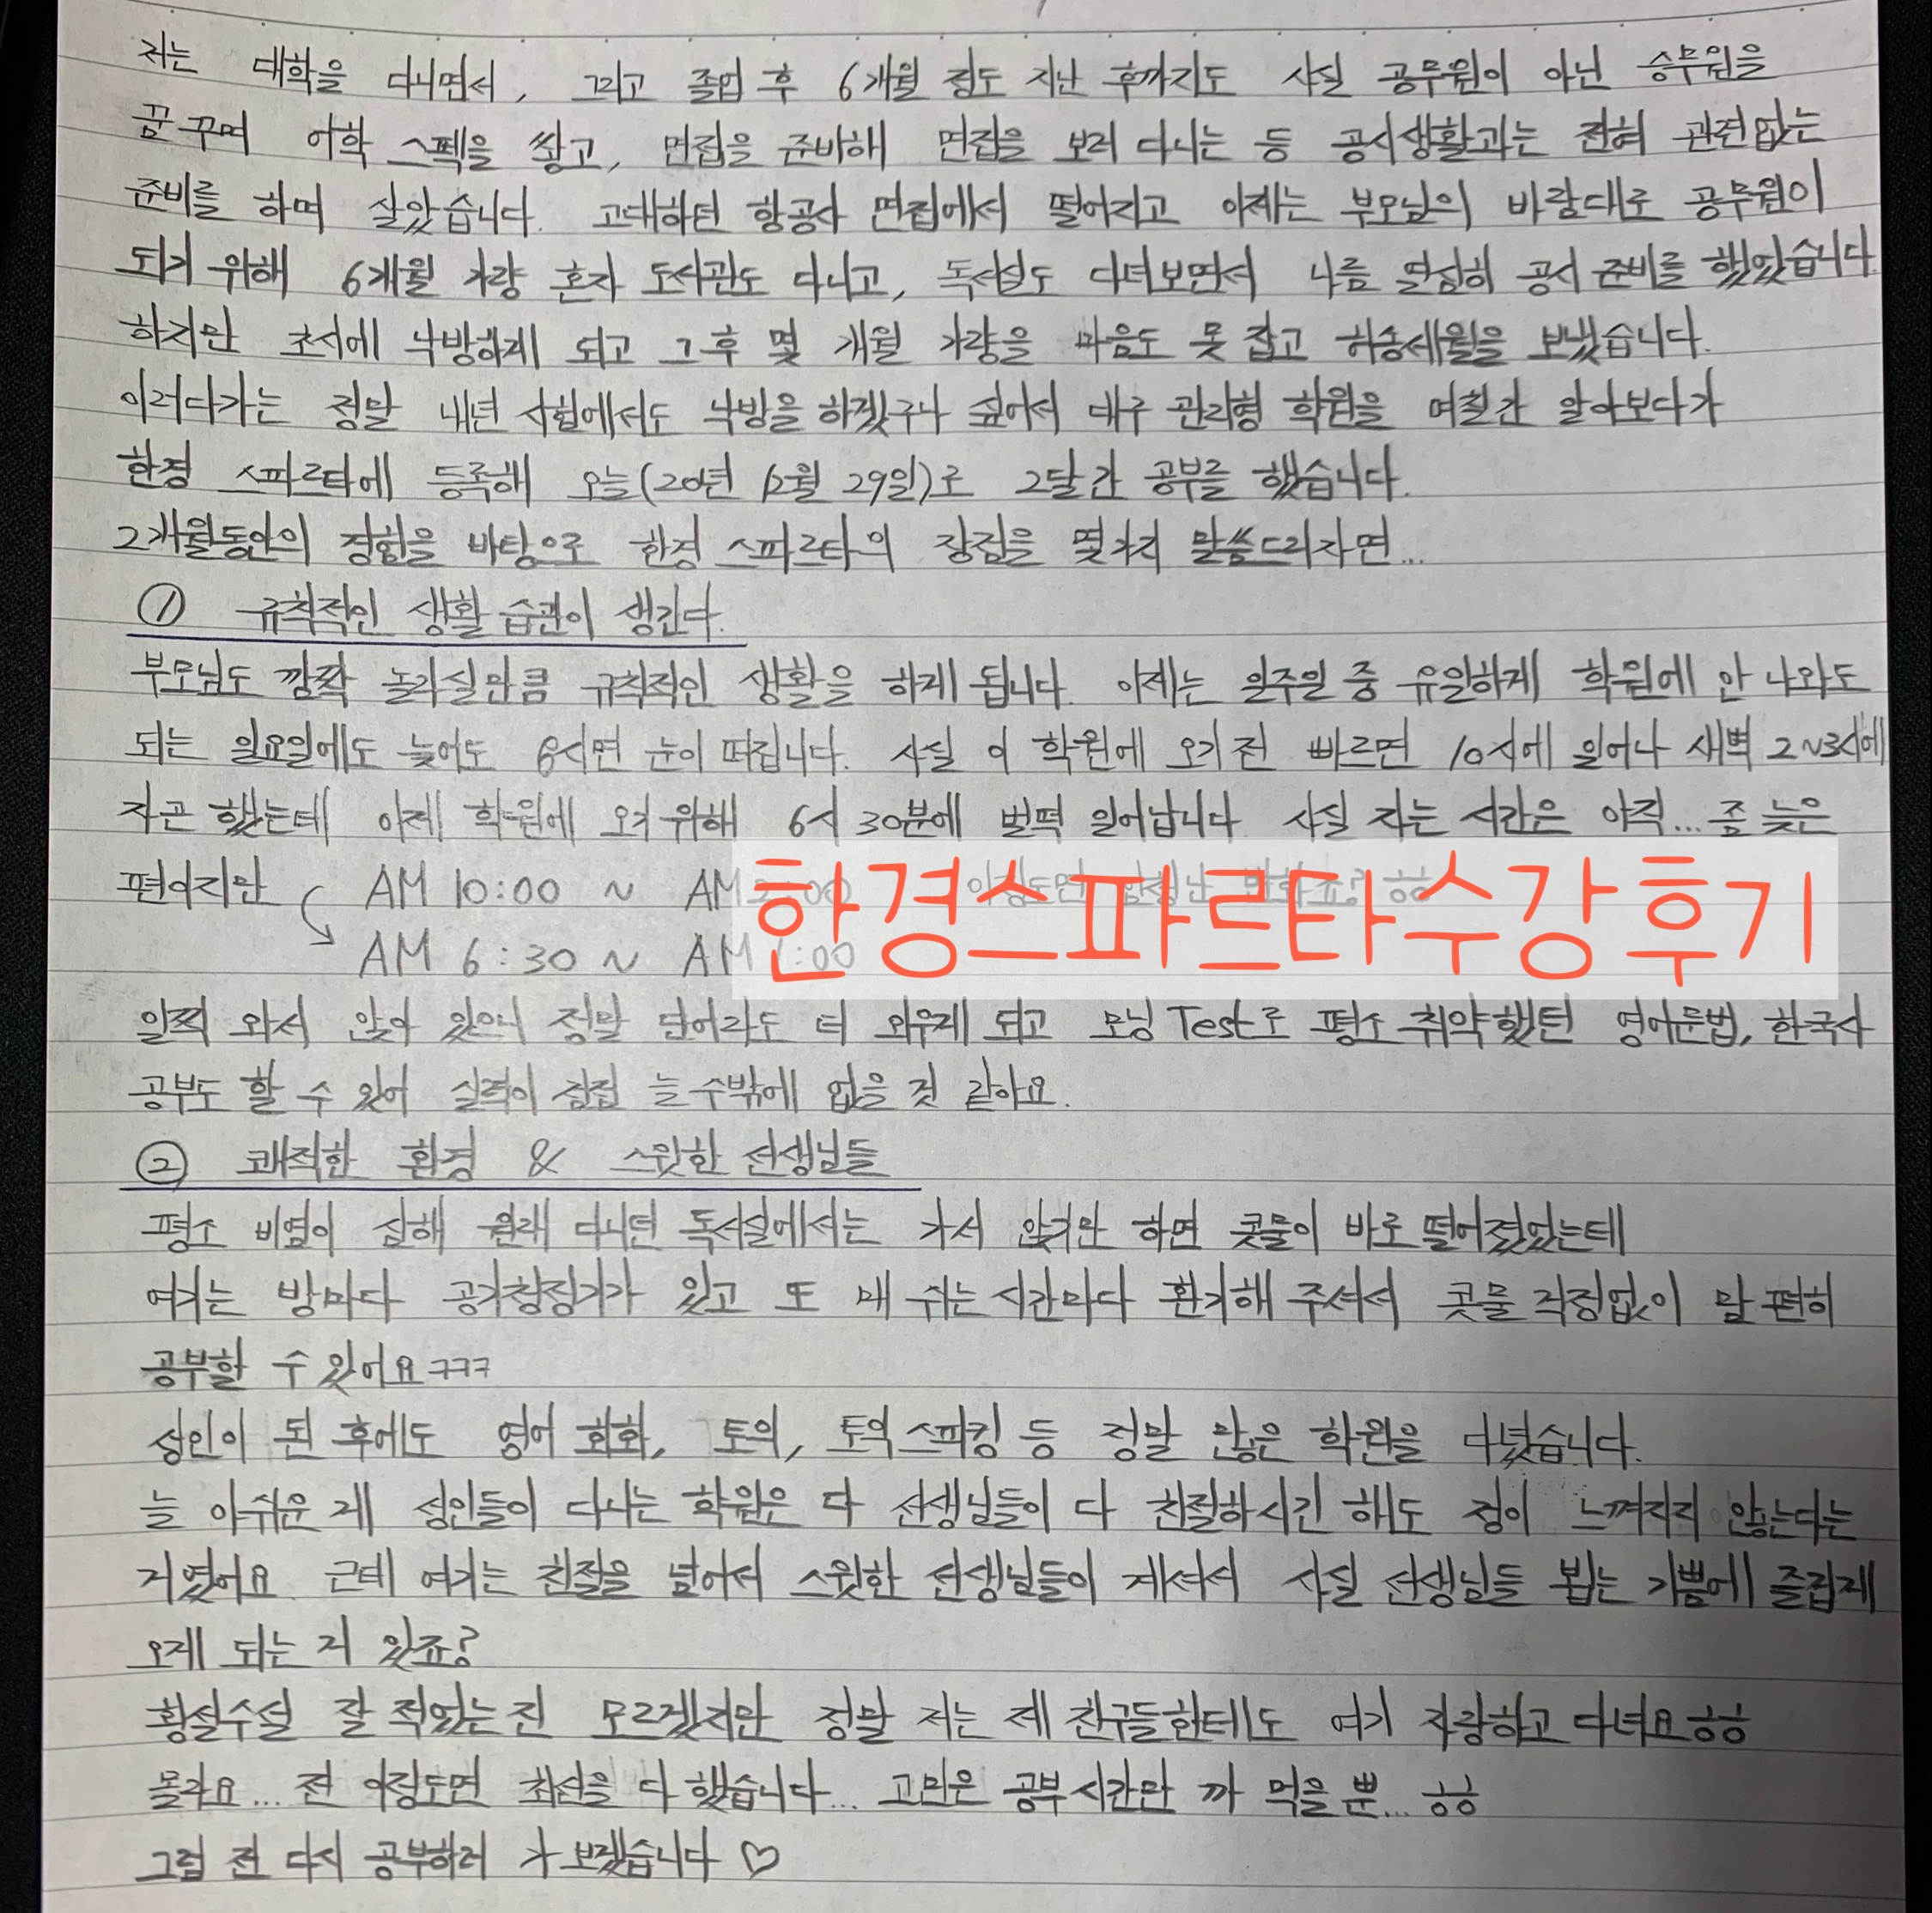 저는 대학을 다니면서, 그리고 졸업 후 6개월 정도 지난 후까지도 사실 공무원이 아닌 승무원을
꿈꾸며 어학 스펙을 쌓고, 면접을 준비해 면접을 보러 다니는 등 공시생활과는 전혀 관련없는
준비를 하며 살았습니다. 고대하던 항공사 면접에서 떨어지고 이제는 부모님의 바람대로 공무원이
되기 위해 6개월 가량 혼자 도서관도 다니고, 독서실도 다녀보면서 나름 열심히 공시 준비를 했었습니다.
하지만 초시에 낙방하게 되고 그 후 몇 개월 가량을 마음도 못 잡고 허송세월을 보냈습니다.
이러다가는 정말 내년 시험에서도 낙방을 하겠구나 싶어서 대구 관리형 학원을 며칠간 알아보다가
한경 스파르타에 등록해 오늘(20년 12월 29일)로 2달간 공부를 했습니다.
2개월동안의 경험을 바탕으로 한경 스파르타의 장점을 몇가지 말씀드리자면...
① 규칙적인 생활 습관이 생긴다.
부모님도 깜짝 놀라실만큼 규칙적인 생활을 하게 됩니다. 이제는 일주일 중 유일하게 학원에 안 나와도
되는 일요일에도 늦어도 8시면 눈이 떠집니다. 사실 이 학원에 오기 전 빠르면 10시에 일어나 새벽 2~3시에
자곤 했는데 이제 학원에 오기 위해 6시 30분에 벌떡 일어납니다 사실 자는 시간은 아직... 좀 늦은
편이지만 AM 10:00 ~ AM :00 이정도면 엄청난 변화죠? ㅎㅎ
한경스파르타수강후기
AM 6:30 ~ AM 1:00
일찍 와서 앉아 있으니 정말 단어라도 더 외우게 되고 모닝 Test로 평소 취약했던 영어문법, 한국사
공부도 할 수 있어 실력이 점점 늘 수밖에 없을 것 같아요.
② 쾌적한 환경 & 스윗한 선생님들
평소 비염이 심해 원래 다니던 독서실에서는 가서 앉기만 하면 콧물이 바로 떨어졌었는데
여기는 방마다 공기청정기가 있고 또 매 쉬는 시간마다 환기해 주셔서 콧물 걱정없이 맘 편히
공부할 수 있어요ㅋㅋㅋ
성인이 된 후에도 영어 회화, 토익, 토익스피킹 등 정말 많은 학원을 다녔습니다.
늘 아쉬운 게 성인들이 다니는 학원은 다 선생님들이 다 친절하시긴 해도 정이 느껴지지 않는다는
거였어요 근데 여기는 친절을 넘어서 스윗한 선생님들이 계셔서 사실 선생님들 뵙는 기쁨에 즐겁게
오게 되는 거 있죠?
횡설수설 잘 적었는진 모르겠지만 정말 저는 제 친구들한테도 여기 자랑하고 다녀요ㅎㅎ
몰라요... 전 이정도면 최선을 다 했습니다... 고민은 공부시간만 까 먹을 뿐... ㅎㅎ
그럼 전 다시 공부하러 가 보겠습니다 ♡